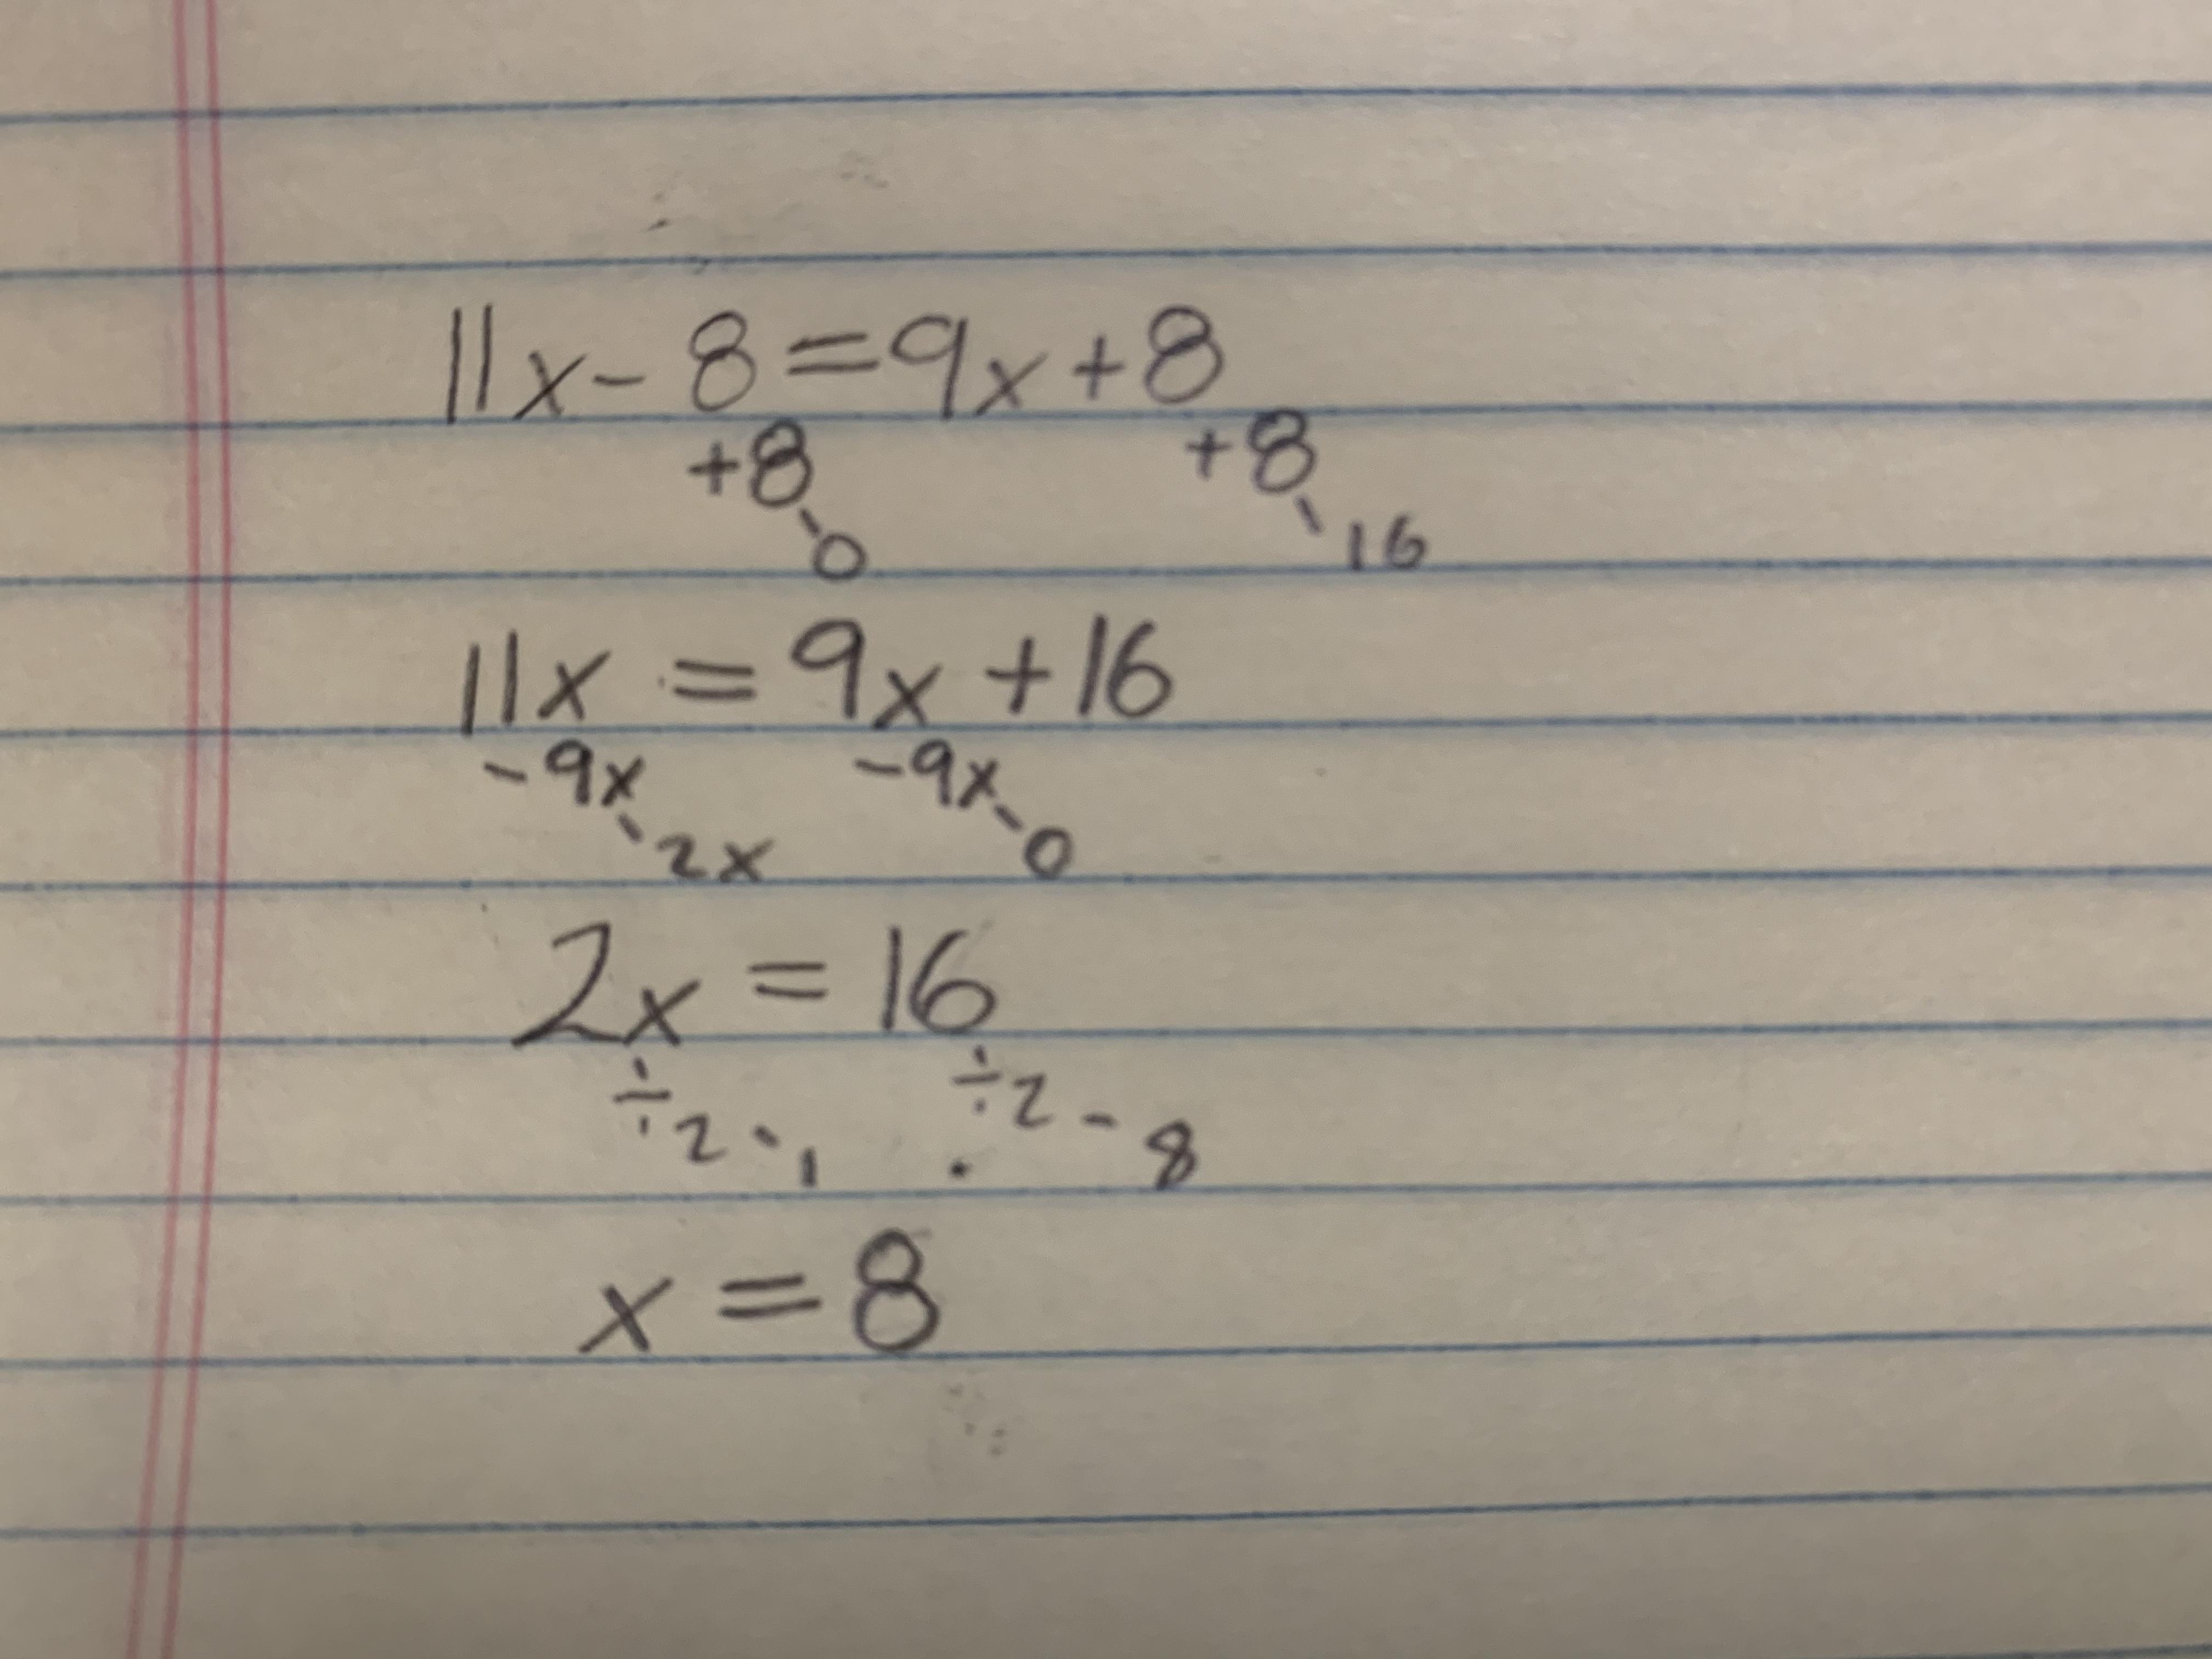 11x - 8 = 9x + 8
+8 +8
0 16
11x = 9x + 16
-9x -9x
2x 0
2x = 16
÷2 1 ÷2 - 8
x = 8